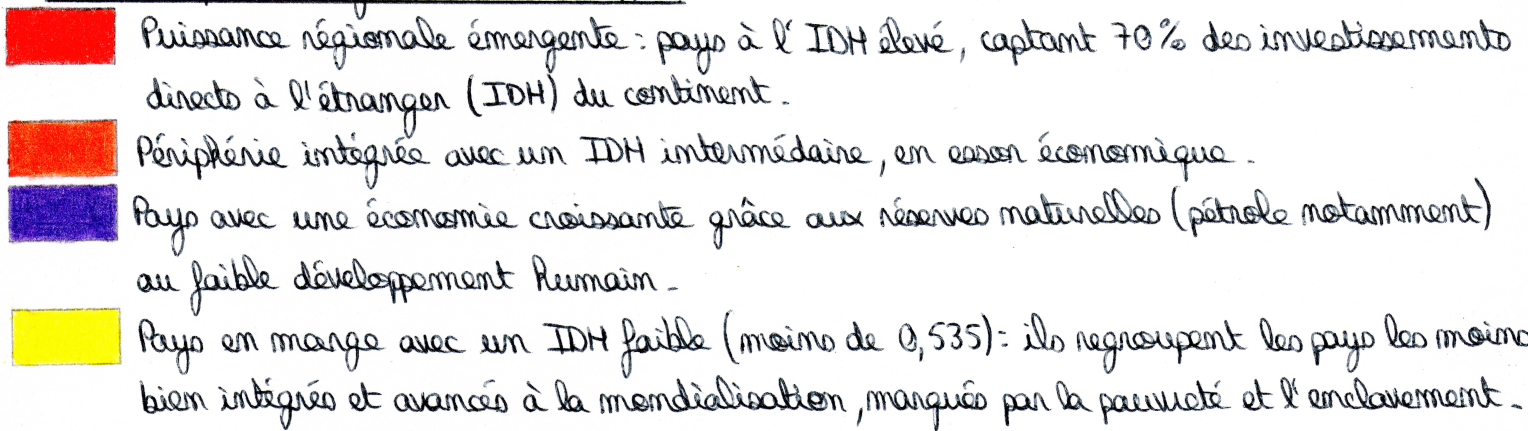 Puissance régionale émergente : pays à l'IDH élevé, captant 70% des investissements
directs à l'étranger (IDH) du continent.
Périphérie intégrée avec un IDH intermédaire, en essor économique.
Pays avec une économie croissante grâce aux réserves naturelles (pétrole notamment)
au faible développement humain.
Pays en marge avec un IDH faible (moins de 0,535) : ils regroupent les pays les moins
bien intégrés et avancés à la mondialisation, marqués par la pauvreté et l'enclavement.